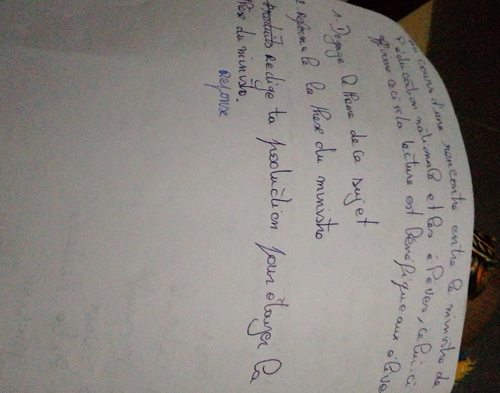 au cours d'une rencontre entre le ministre de
l'éducation nationale et les élèves, celui-ci
affirme ceci « la lecture est bénéfique aux élèves
1. Dégage le thème de la sujet
2. la these du ministre
Rédige ta production pour étayer la
these du ministre.
Réponse